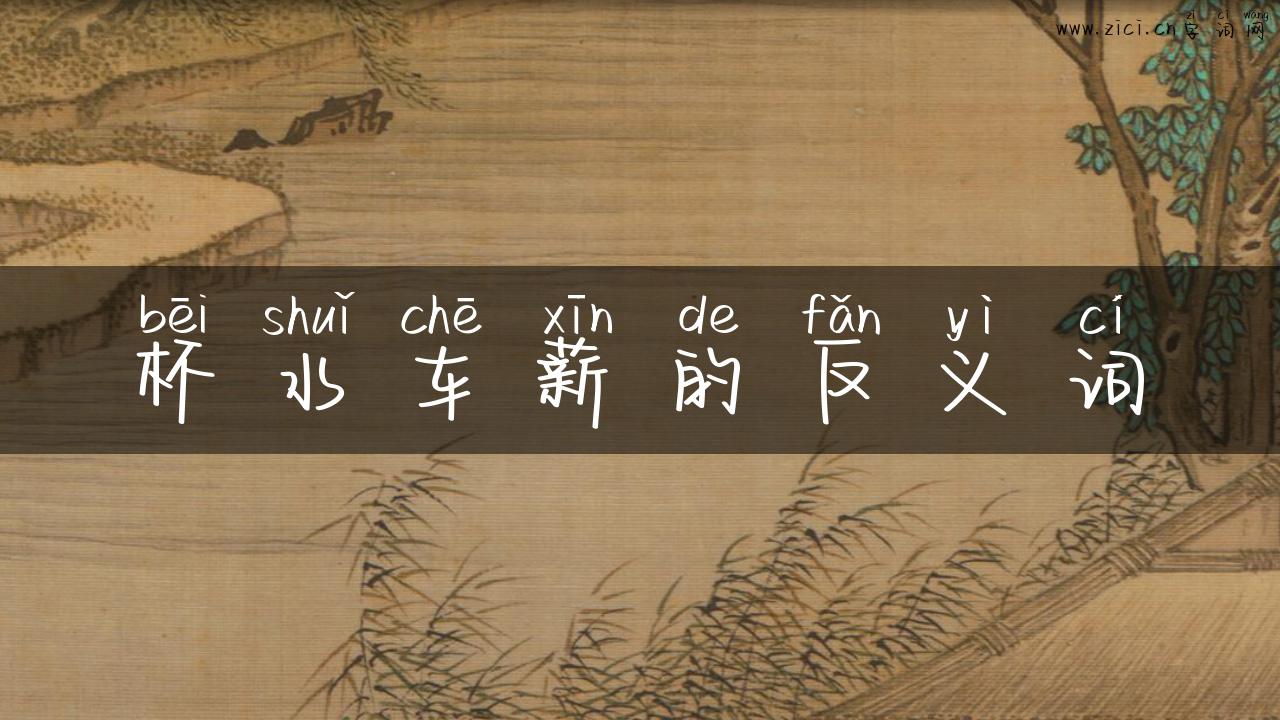 zì cí wǎng
www.zici.cn 字词网
bēi shuǐ chē xīn de fǎn yì cí
杯水车薪的反义词